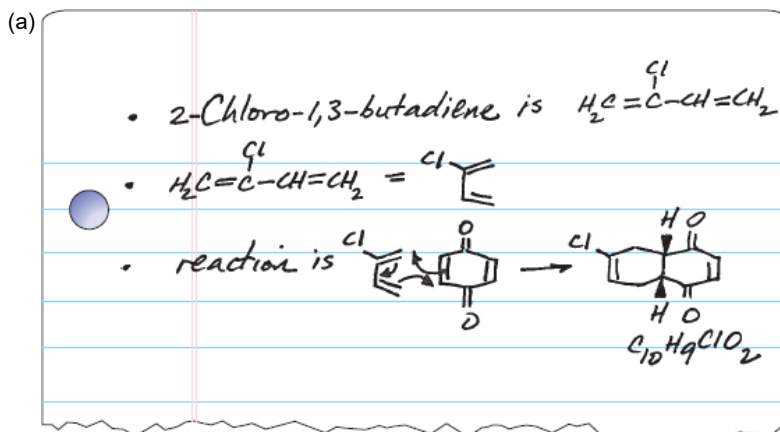 (a)
Cl
• 2-Chloro-1,3-butadiene is H₂C=C-CH=CH₂
Cl
• H₂C=C-CH=CH₂ = Cl
• reaction is Cl O O → Cl H O H O
C₁₀H₉ClO₂